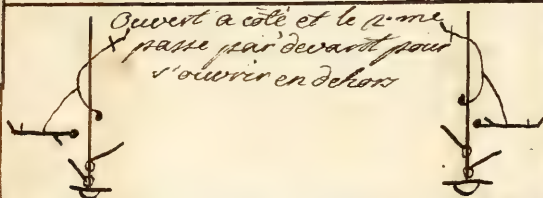 Ouvert a côté et le 2.me
passe par devant pour
s'ouvrir en dehors